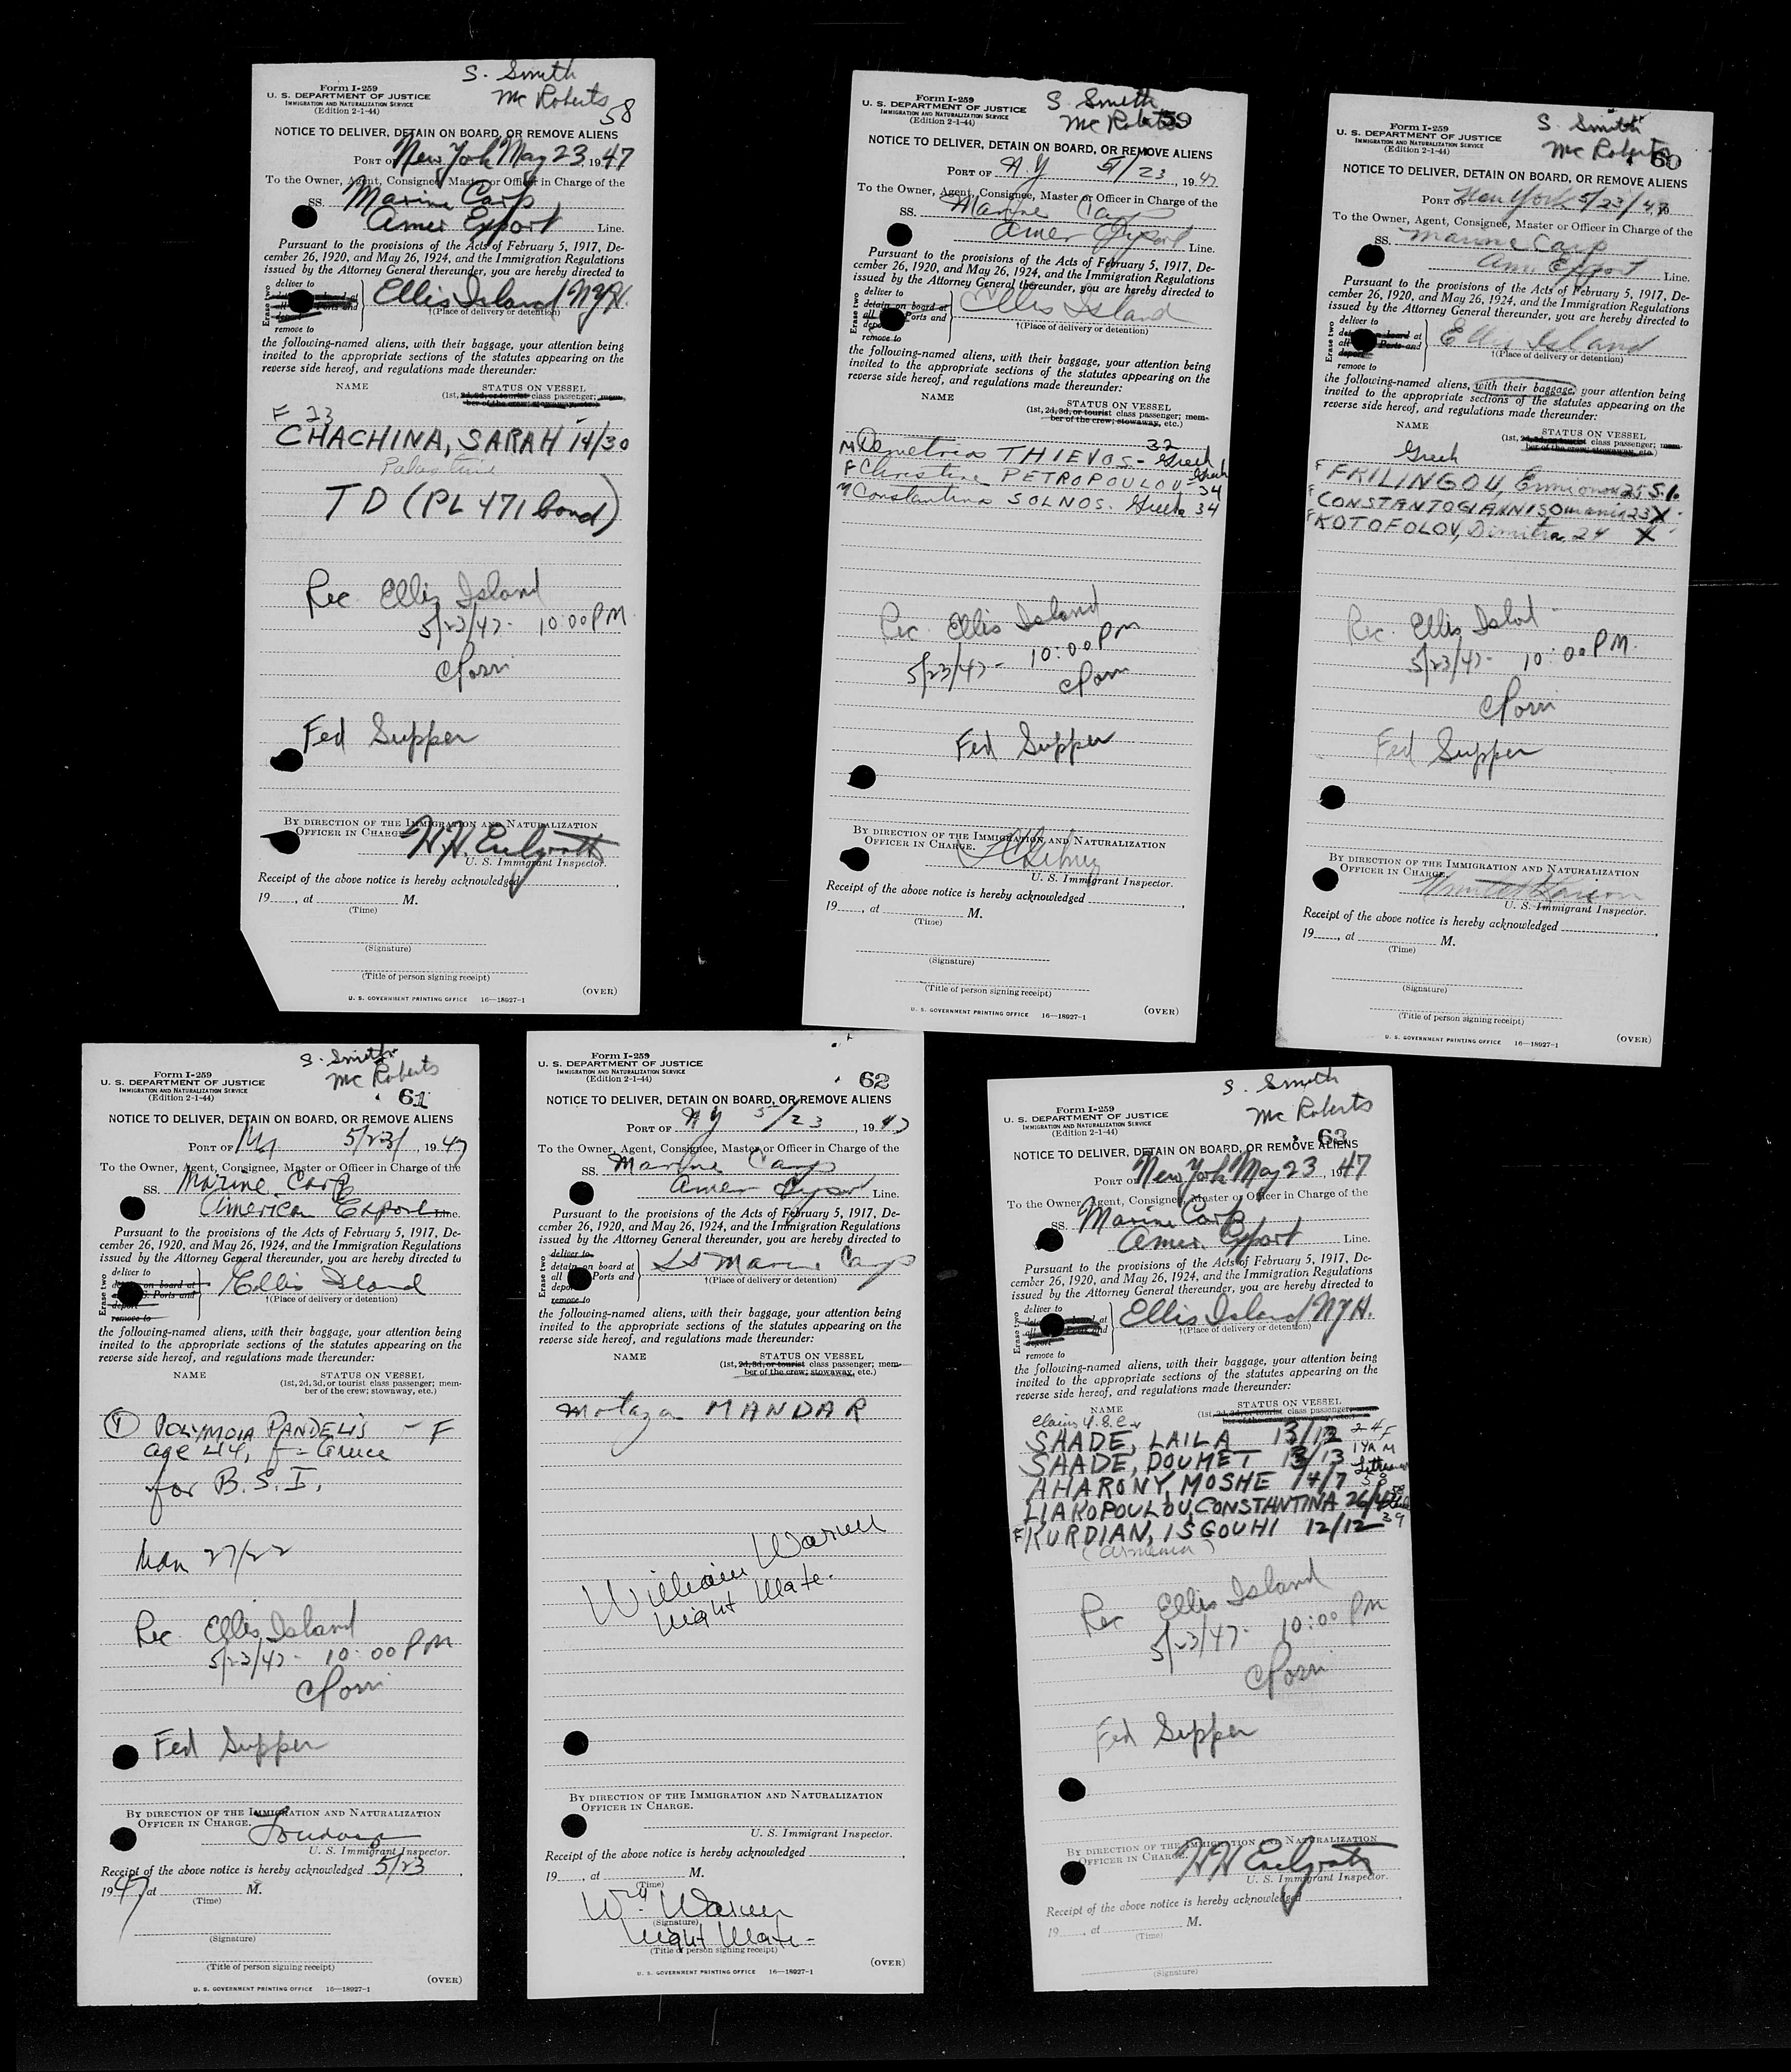 S. Smith
Mc Roberts
58
Form I-259
U. S. DEPARTMENT OF JUSTICE
IMMIGRATION AND NATURALIZATION SERVICE
(Edition 2-1-44)
NOTICE TO DELIVER, DETAIN ON BOARD, OR REMOVE ALIENS
PORT OF New York May 23, 1947
To the Owner, Agent, Consignee, Master or Officer in Charge of the
SS. Marine Carp
Amer Export Line.
Pursuant to the provisions of the Acts of February 5, 1917, De-
cember 26, 1920, and May 26, 1924, and the Immigration Regulations
issued by the Attorney General thereunder, you are hereby directed to
Erase two
deliver to
Ellis Island NYH.
†(Place of delivery or detention)
remove to
the following-named aliens, with their baggage, your attention being
invited to the appropriate sections of the statutes appearing on the
reverse side hereof, and regulations made thereunder:
NAME STATUS ON VESSEL
(1st, 2d, 3d, or tourist class passenger; mem-
ber of the crew; stowaway, etc.)
F 23
CHACHINA, SARAH 14/30
Palestine
TD (PL 471 bond)
Rec. Ellis Island
5/23/47 - 10:00 PM
Fed Supper
BY DIRECTION OF THE IMMIGRATION AND NATURALIZATION
OFFICER IN CHARGE.
U. S. Immigrant Inspector.
Receipt of the above notice is hereby acknowledged
19 , at M.
(Time)
(Signature)
(Title of person signing receipt)
(OVER)
U. S. GOVERNMENT PRINTING OFFICE 16—18927-1
S. Smith
Mc Roberts
59
Form I-259
U. S. DEPARTMENT OF JUSTICE
IMMIGRATION AND NATURALIZATION SERVICE
(Edition 2-1-44)
NOTICE TO DELIVER, DETAIN ON BOARD, OR REMOVE ALIENS
PORT OF N.Y 5/23, 1947
To the Owner, Agent, Consignee, Master or Officer in Charge of the
SS. Marine Carp
Amer Export Line.
Pursuant to the provisions of the Acts of February 5, 1917, De-
cember 26, 1920, and May 26, 1924, and the Immigration Regulations
issued by the Attorney General thereunder, you are hereby directed to
Erase two
deliver to
detain on board at
all Ports and
Ellis Island
†(Place of delivery or detention)
remove to
the following-named aliens, with their baggage, your attention being
invited to the appropriate sections of the statutes appearing on the
reverse side hereof, and regulations made thereunder:
NAME STATUS ON VESSEL
(1st, 2d, 3d, or tourist class passenger; mem-
ber of the crew; stowaway, etc.)
M Demetrios THIEVOS - Greek 32
F Christine PETROPOULOU - Greek 34
M Constantinos SOLNOS. Greek 34
Rec. Ellis Island
5/23/47 - 10:00 PM
Fed Supper
BY DIRECTION OF THE IMMIGRATION AND NATURALIZATION
OFFICER IN CHARGE.
U. S. Immigrant Inspector.
Receipt of the above notice is hereby acknowledged
19 , at M.
(Time)
(Signature)
(Title of person signing receipt)
U. S. GOVERNMENT PRINTING OFFICE 16—18927-1 (OVER)
S. Smith
Mc Roberts
60
Form I-259
U. S. DEPARTMENT OF JUSTICE
IMMIGRATION AND NATURALIZATION SERVICE
(Edition 2-1-44)
NOTICE TO DELIVER, DETAIN ON BOARD, OR REMOVE ALIENS
PORT OF New York 5/23/47
To the Owner, Agent, Consignee, Master or Officer in Charge of the
SS. Marine Carp
Am. Export Line.
Pursuant to the provisions of the Acts of February 5, 1917, De-
cember 26, 1920, and May 26, 1924, and the Immigration Regulations
issued by the Attorney General thereunder, you are hereby directed to
Erase two
deliver to
Ellis Island
†(Place of delivery or detention)
remove to
the following-named aliens, with their baggage, your attention being
invited to the appropriate sections of the statutes appearing on the
reverse side hereof, and regulations made thereunder:
NAME STATUS ON VESSEL
(1st, 2d, 3d, or tourist class passenger; mem-
ber of the crew; stowaway, etc.)
Greek
F FRILINGOU,
F CONSTANTOGIANNIS 23 X
F KOTOFOLOV, Dimitra, 24 X
Rec. Ellis Island
5/23/47 - 10:00 PM.
Fed Supper
BY DIRECTION OF THE IMMIGRATION AND NATURALIZATION
OFFICER IN CHARGE.
U. S. Immigrant Inspector.
Receipt of the above notice is hereby acknowledged
19 , at M.
(Time)
(Signature)
(Title of person signing receipt)
U. S. GOVERNMENT PRINTING OFFICE 16—18927-1 (OVER)
S. Smith
Mc Roberts
61
Form I-259
U. S. DEPARTMENT OF JUSTICE
IMMIGRATION AND NATURALIZATION SERVICE
(Edition 2-1-44)
NOTICE TO DELIVER, DETAIN ON BOARD, OR REMOVE ALIENS
PORT OF NY 5/23/, 1947
To the Owner, Agent, Consignee, Master or Officer in Charge of the
SS. Marine Carp
American Export Line.
Pursuant to the provisions of the Acts of February 5, 1917, De-
cember 26, 1920, and May 26, 1924, and the Immigration Regulations
issued by the Attorney General thereunder, you are hereby directed to
Erase two
deliver to
Ellis Island
†(Place of delivery or detention)
remove to
the following-named aliens, with their baggage, your attention being
invited to the appropriate sections of the statutes appearing on the
reverse side hereof, and regulations made thereunder:
NAME STATUS ON VESSEL
(1st, 2d, 3d, or tourist class passenger; mem-
ber of the crew; stowaway, etc.)
(1) POLYMOIA PANDELIS - F
age 44, f - Greece
for B.S.I.
Man 27/22
Rec. Ellis Island
5/23/47 - 10:00 PM
Fed Supper
BY DIRECTION OF THE IMMIGRATION AND NATURALIZATION
OFFICER IN CHARGE.
U. S. Immigrant Inspector.
Receipt of the above notice is hereby acknowledged 5/23,
1947, at M.
(Time)
(Signature)
(Title of person signing receipt)
(OVER)
U. S. GOVERNMENT PRINTING OFFICE 16—18927-1
62
Form I-259
U. S. DEPARTMENT OF JUSTICE
IMMIGRATION AND NATURALIZATION SERVICE
(Edition 2-1-44)
NOTICE TO DELIVER, DETAIN ON BOARD, OR REMOVE ALIENS
PORT OF NY 5/23, 1947
To the Owner, Agent, Consignee, Master or Officer in Charge of the
SS. Marine Carp
Amer Export Line.
Pursuant to the provisions of the Acts of February 5, 1917, De-
cember 26, 1920, and May 26, 1924, and the Immigration Regulations
issued by the Attorney General thereunder, you are hereby directed to
Erase two
deliver to
detain on board at
all Ports and
SS Marine Carp
†(Place of delivery or detention)
remove to
the following-named aliens, with their baggage, your attention being
invited to the appropriate sections of the statutes appearing on the
reverse side hereof, and regulations made thereunder:
NAME STATUS ON VESSEL
(1st, 2d, 3d, or tourist class passenger; mem-
ber of the crew; stowaway, etc.)
Motaza MANDAR
William Warren
Night Mate.
BY DIRECTION OF THE IMMIGRATION AND NATURALIZATION
OFFICER IN CHARGE.
U. S. Immigrant Inspector.
Receipt of the above notice is hereby acknowledged
19 , at M.
(Time)
Wm. Warren
(Signature)
Night Mate -
(Title of person signing receipt)
(OVER)
U. S. GOVERNMENT PRINTING OFFICE 16—18927-1
S. Smith
Mc Roberts
63
Form I-259
U. S. DEPARTMENT OF JUSTICE
IMMIGRATION AND NATURALIZATION SERVICE
(Edition 2-1-44)
NOTICE TO DELIVER, DETAIN ON BOARD, OR REMOVE ALIENS
PORT OF New York May 23, 1947
To the Owner, Agent, Consignee, Master or Officer in Charge of the
SS. Marine Carp
Amer. Export Line.
Pursuant to the provisions of the Acts of February 5, 1917, De-
cember 26, 1920, and May 26, 1924, and the Immigration Regulations
issued by the Attorney General thereunder, you are hereby directed to
Erase two
deliver to
Ellis Island NYH.
†(Place of delivery or detention)
remove to
the following-named aliens, with their baggage, your attention being
invited to the appropriate sections of the statutes appearing on the
reverse side hereof, and regulations made thereunder:
NAME STATUS ON VESSEL
Claims U.S.C.
SHADE, LAILA 13/12 24 F
SHADE, DOUMET 13/13
AHARONY, MOSHE 14/7
LIAKOPOULOU, CONSTANTINA
F KURDIAN, ISGOUHI 12/12 39
(Armenia)
Rec Ellis Island
5/23/47 - 10:00 PM
Fed Supper
BY DIRECTION OF THE IMMIGRATION AND NATURALIZATION
OFFICER IN CHARGE.
U. S. Immigrant Inspector.
Receipt of the above notice is hereby acknowledged
19 , at M.
(Time)
(Signature)